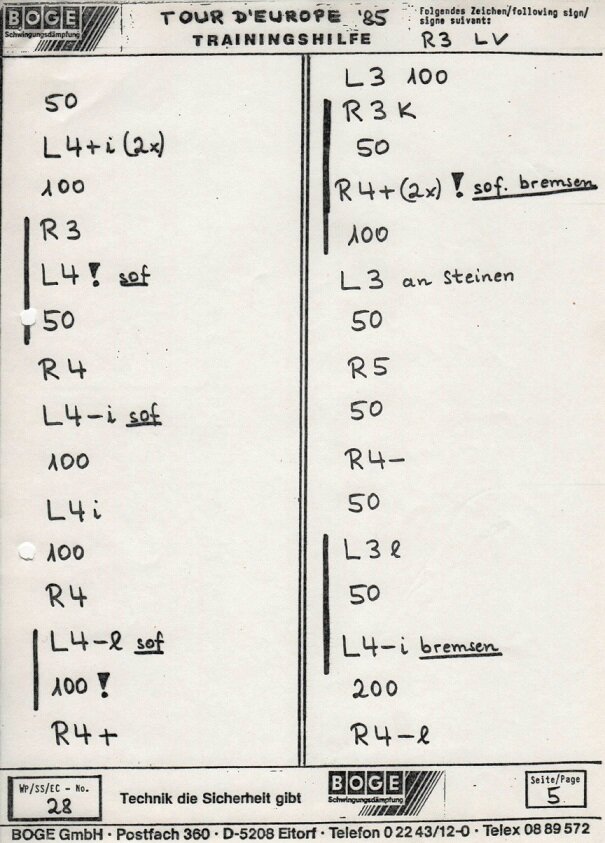 BOGE
Schwingungsdämpfung
TOUR D'EUROPE '85
TRAININGSHILFE
Folgendes Zeichen/following sign/
signe suivant:
R3 LV
50
L4+i (2x)
100
R3
L4! sof
50
R4
L4-i sof
100
L4i
100
R4
L4-l sof
100!
R4+
L3 100
R3K
50
R4+(2x)! sof. bremsen
100
L3 an Steinen
50
R5
50
R4-
50
L3l
50
L4-i bremsen
200
R4-l
WP/SS/EC - No.
28
Technik die Sicherheit gibt
BOGE
Schwingungsdämpfung
Seite/Page
5
BOGE GmbH · Postfach 360 · D-5208 Eitorf · Telefon 0 22 43/12-0 · Telex 08 89 572